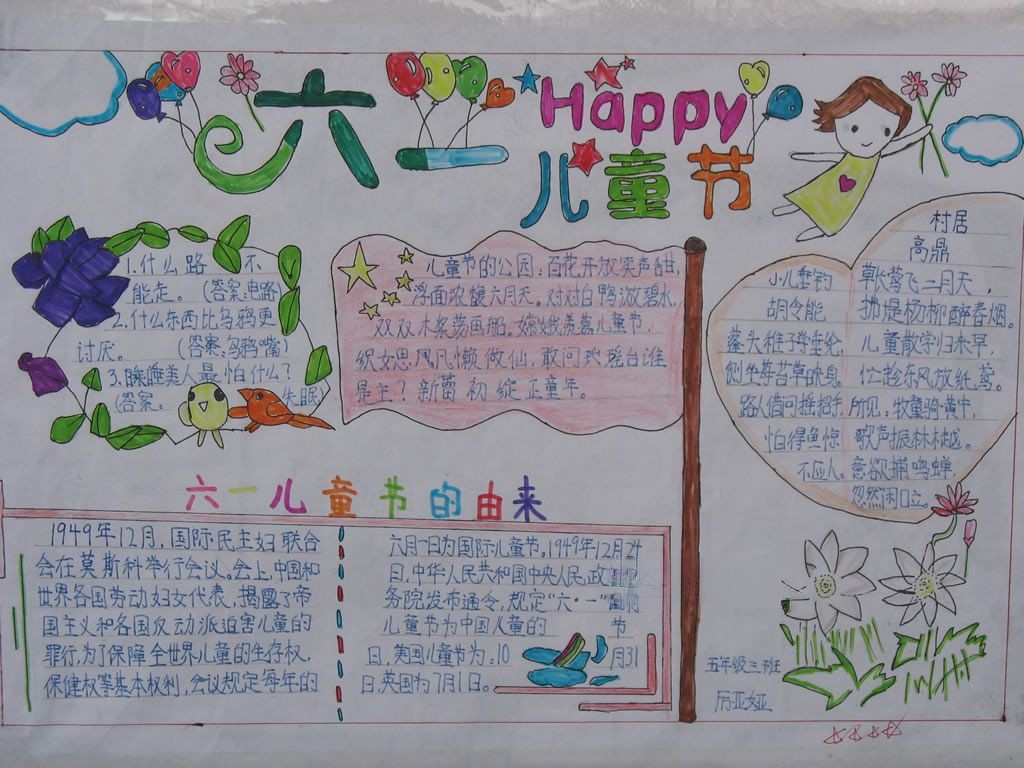 六一
Happy
儿童节
1.什么路 不
能走。(答案:电路)
2.什么东西比乌鸦更
讨厌。 (答案:乌鸦嘴)
3.睡美人最怕什么?
(答案. 失眠)
儿童节的公园:百花开放笑声甜,
浮面浓馥六月天。对对白鸭游碧水,
双双木桨荡画船。嫦娥羡慕儿童节,
织女思凡懒做仙。敢问瑶台谁
是主?新蕾初绽正童年。
小儿垂钓
胡令能
蓬头稚子学垂纶,
侧坐莓苔草映身。
路人借问摇招手,
怕得鱼惊
不应人。
村居
高鼎
草长莺飞二月天,
拂堤杨柳醉春烟。
儿童散学归来早,
忙趁东风放纸鸢。
所见:牧童骑黄牛,
歌声振林樾。
意欲捕鸣蝉,
忽然闭口立。
六一儿童节的由来
1949年12月,国际民主妇联合
会在莫斯科举行会议。会上,中国和
世界各国劳动妇女代表,揭露了帝
国主义和各国反动派迫害儿童的
罪行,为了保障全世界儿童的生存权,
保健权等基本权利,会议规定每年的
六月一日为国际儿童节。1949年12月2
日,中华人民共和国中央人民政
务院发布通令,规定"六·一"
儿童节为中国儿童的 节
日,美国儿童节为:10 月31
日,英国为7月1日。
五年级三班
厉亚娅